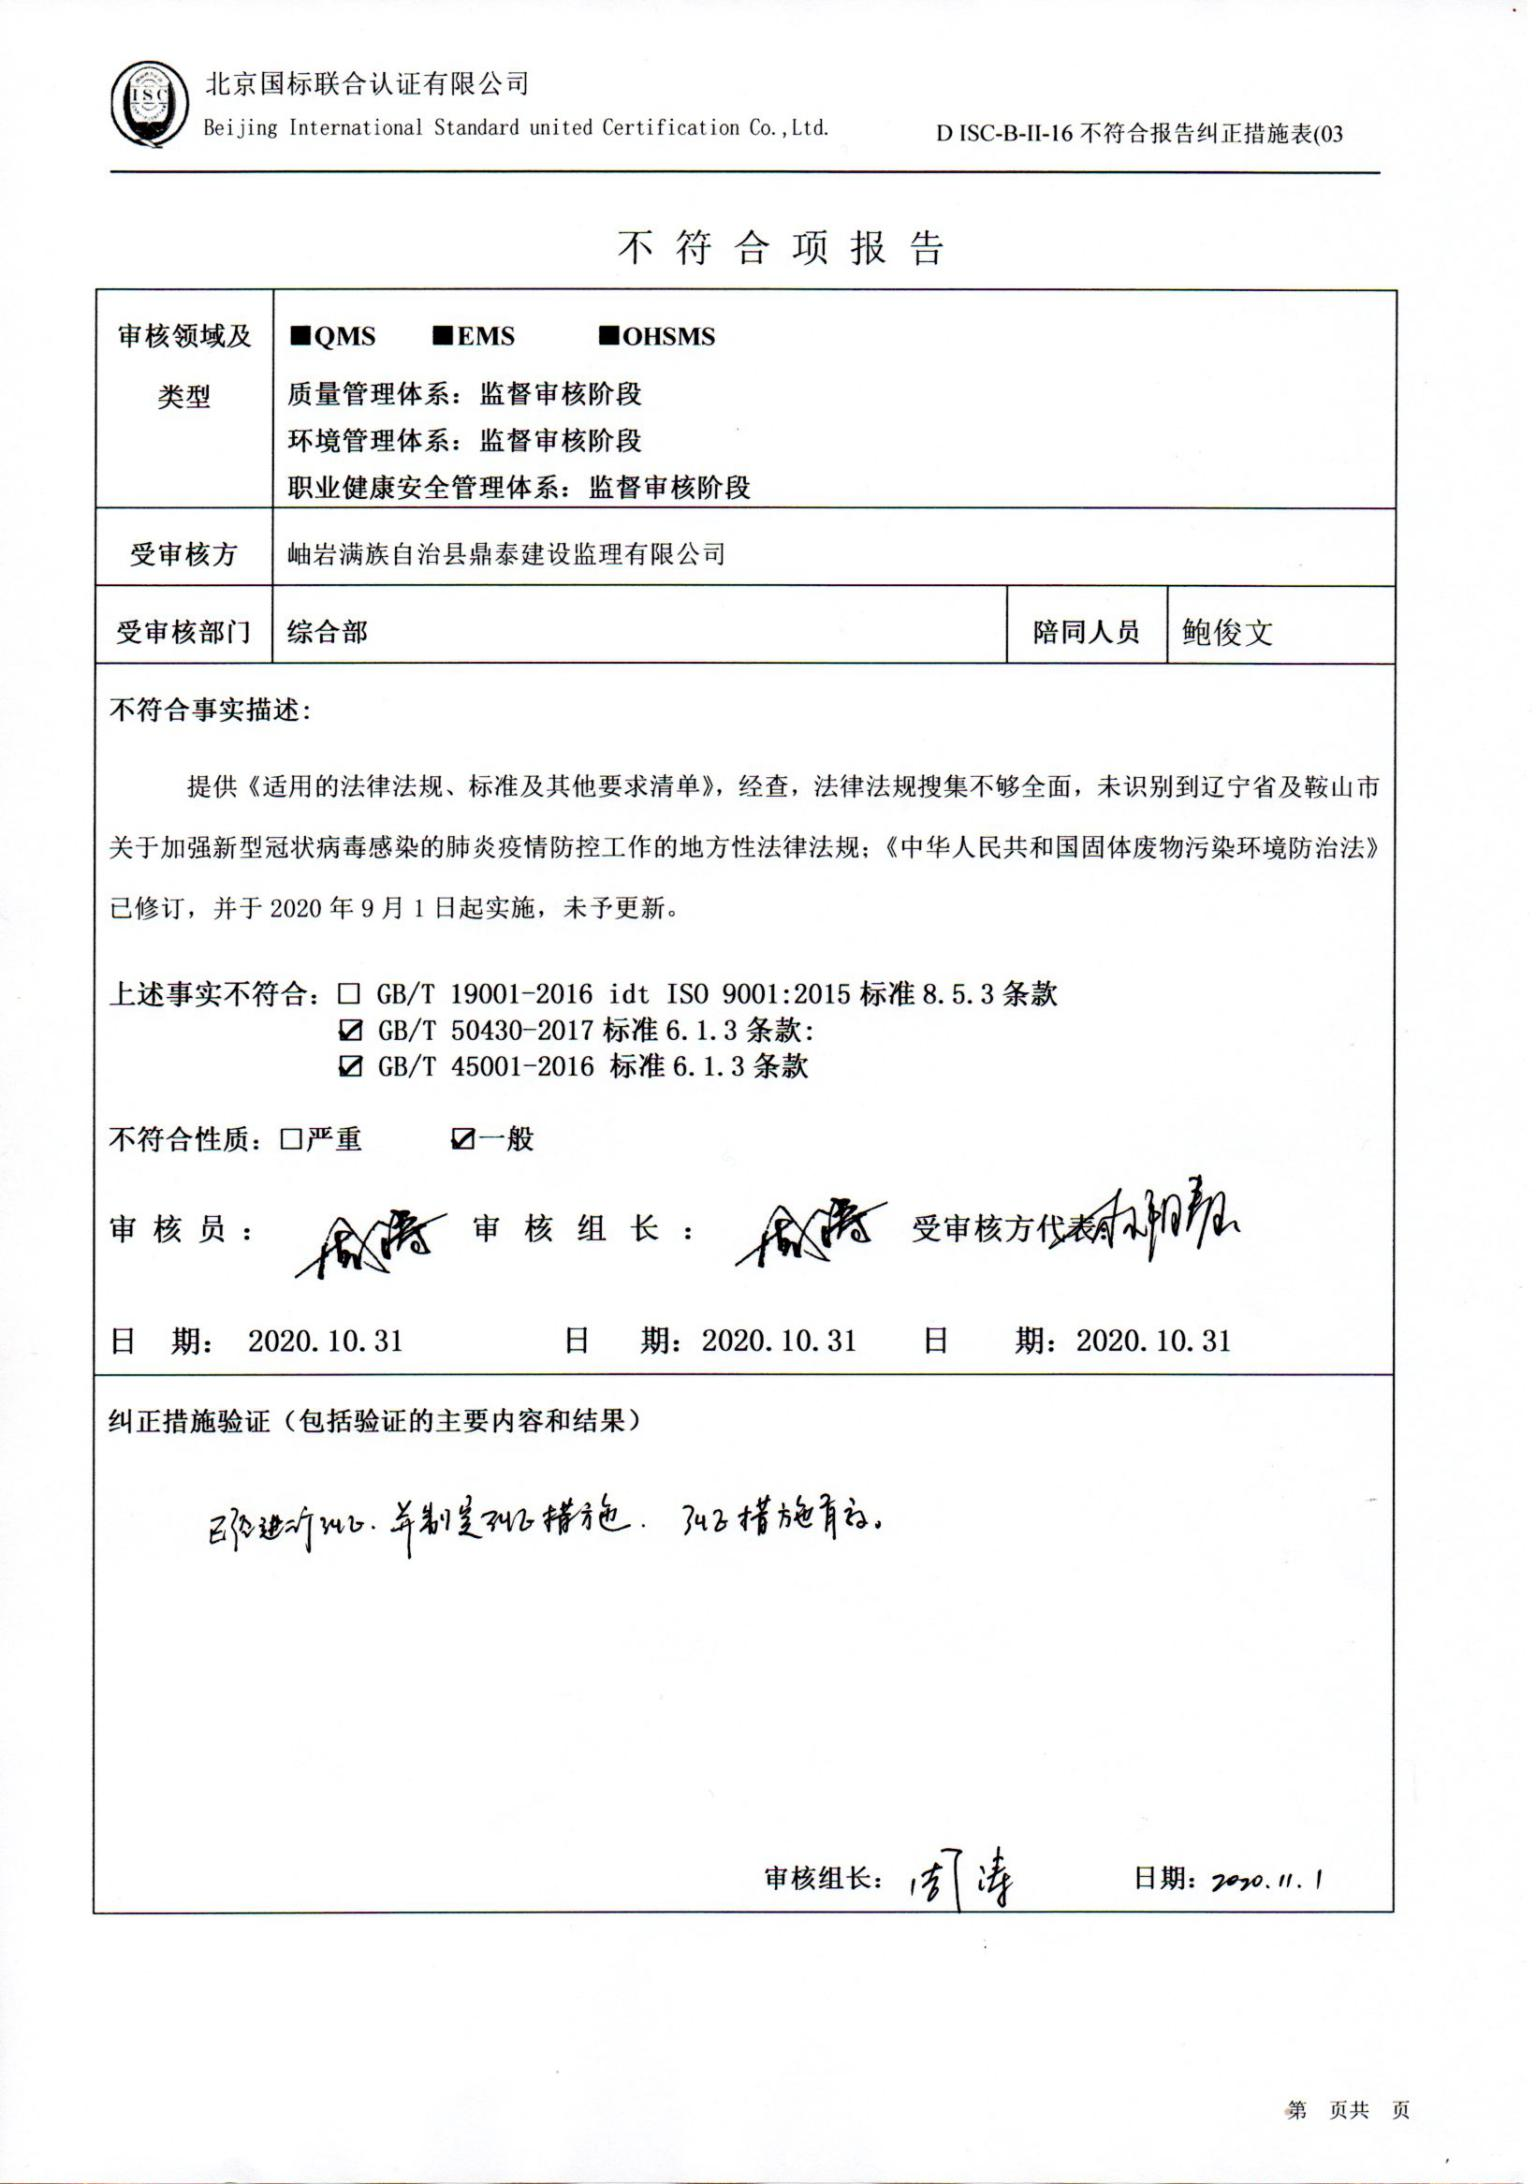 ISC
北京国标联合认证有限公司
Beijing International Standard united Certification Co.,Ltd.
D ISC-B-II-16 不符合报告纠正措施表(03
不符合项报告
审核领域及
类型
■QMS ■EMS ■OHSMS
质量管理体系：监督审核阶段
环境管理体系：监督审核阶段
职业健康安全管理体系：监督审核阶段
受审核方 岫岩满族自治县鼎泰建设监理有限公司
受审核部门 综合部 陪同人员 鲍俊文
不符合事实描述：
提供《适用的法律法规、标准及其他要求清单》，经查，法律法规搜集不够全面，未识别到辽宁省及鞍山市
关于加强新型冠状病毒感染的肺炎疫情防控工作的地方性法律法规；《中华人民共和国固体废物污染环境防治法》
已修订，并于 2020 年 9 月 1 日起实施，未予更新。
上述事实不符合：□ GB/T 19001-2016 idt ISO 9001:2015 标准 8.5.3 条款
☑ GB/T 50430-2017 标准 6.1.3 条款:
☑ GB/T 45001-2016 标准 6.1.3 条款
不符合性质：□严重 ☑一般
审核员： 周涛 审核组长： 周涛 受审核方代表
日 期： 2020.10.31 日 期：2020.10.31 日 期：2020.10.31
纠正措施验证（包括验证的主要内容和结果）
已经进行纠正．并制定纠正措施．纠正措施有效。
审核组长：周涛 日期：2020.11.1
第 页共 页